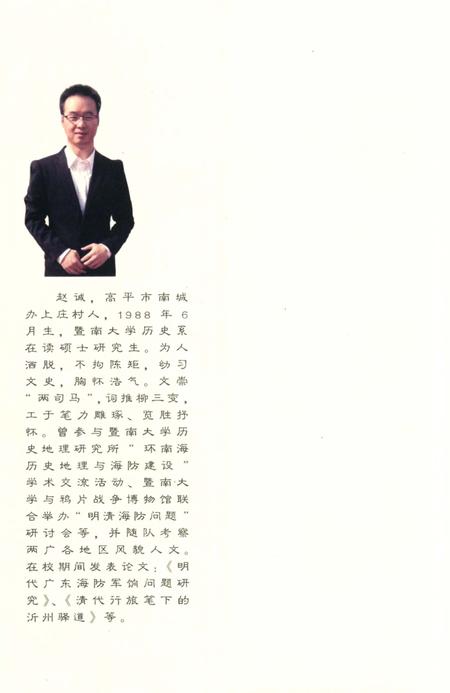 赵诚，高平市南城
办上庄村人，1988 年 6
月生，暨南大学历史系
在读硕士研究生。为人
洒脱，不拘陈矩，幼习
文史，胸怀浩气。文崇
“两司马”，词推柳三变，
工于笔力雕琢、览胜抒
怀。曾参与暨南大学历
史地理研究所“环南海
历史地理与海防建设”
学术交流活动、暨南大
学与鸦片战争博物馆联
合举办“明清海防问题”
研讨会等，并随队考察
两广各地区风貌人文。
在校期间发表论文：《明
代广东海防军饷问题研
究》、《清代行旅笔下的
沂州驿道》等。